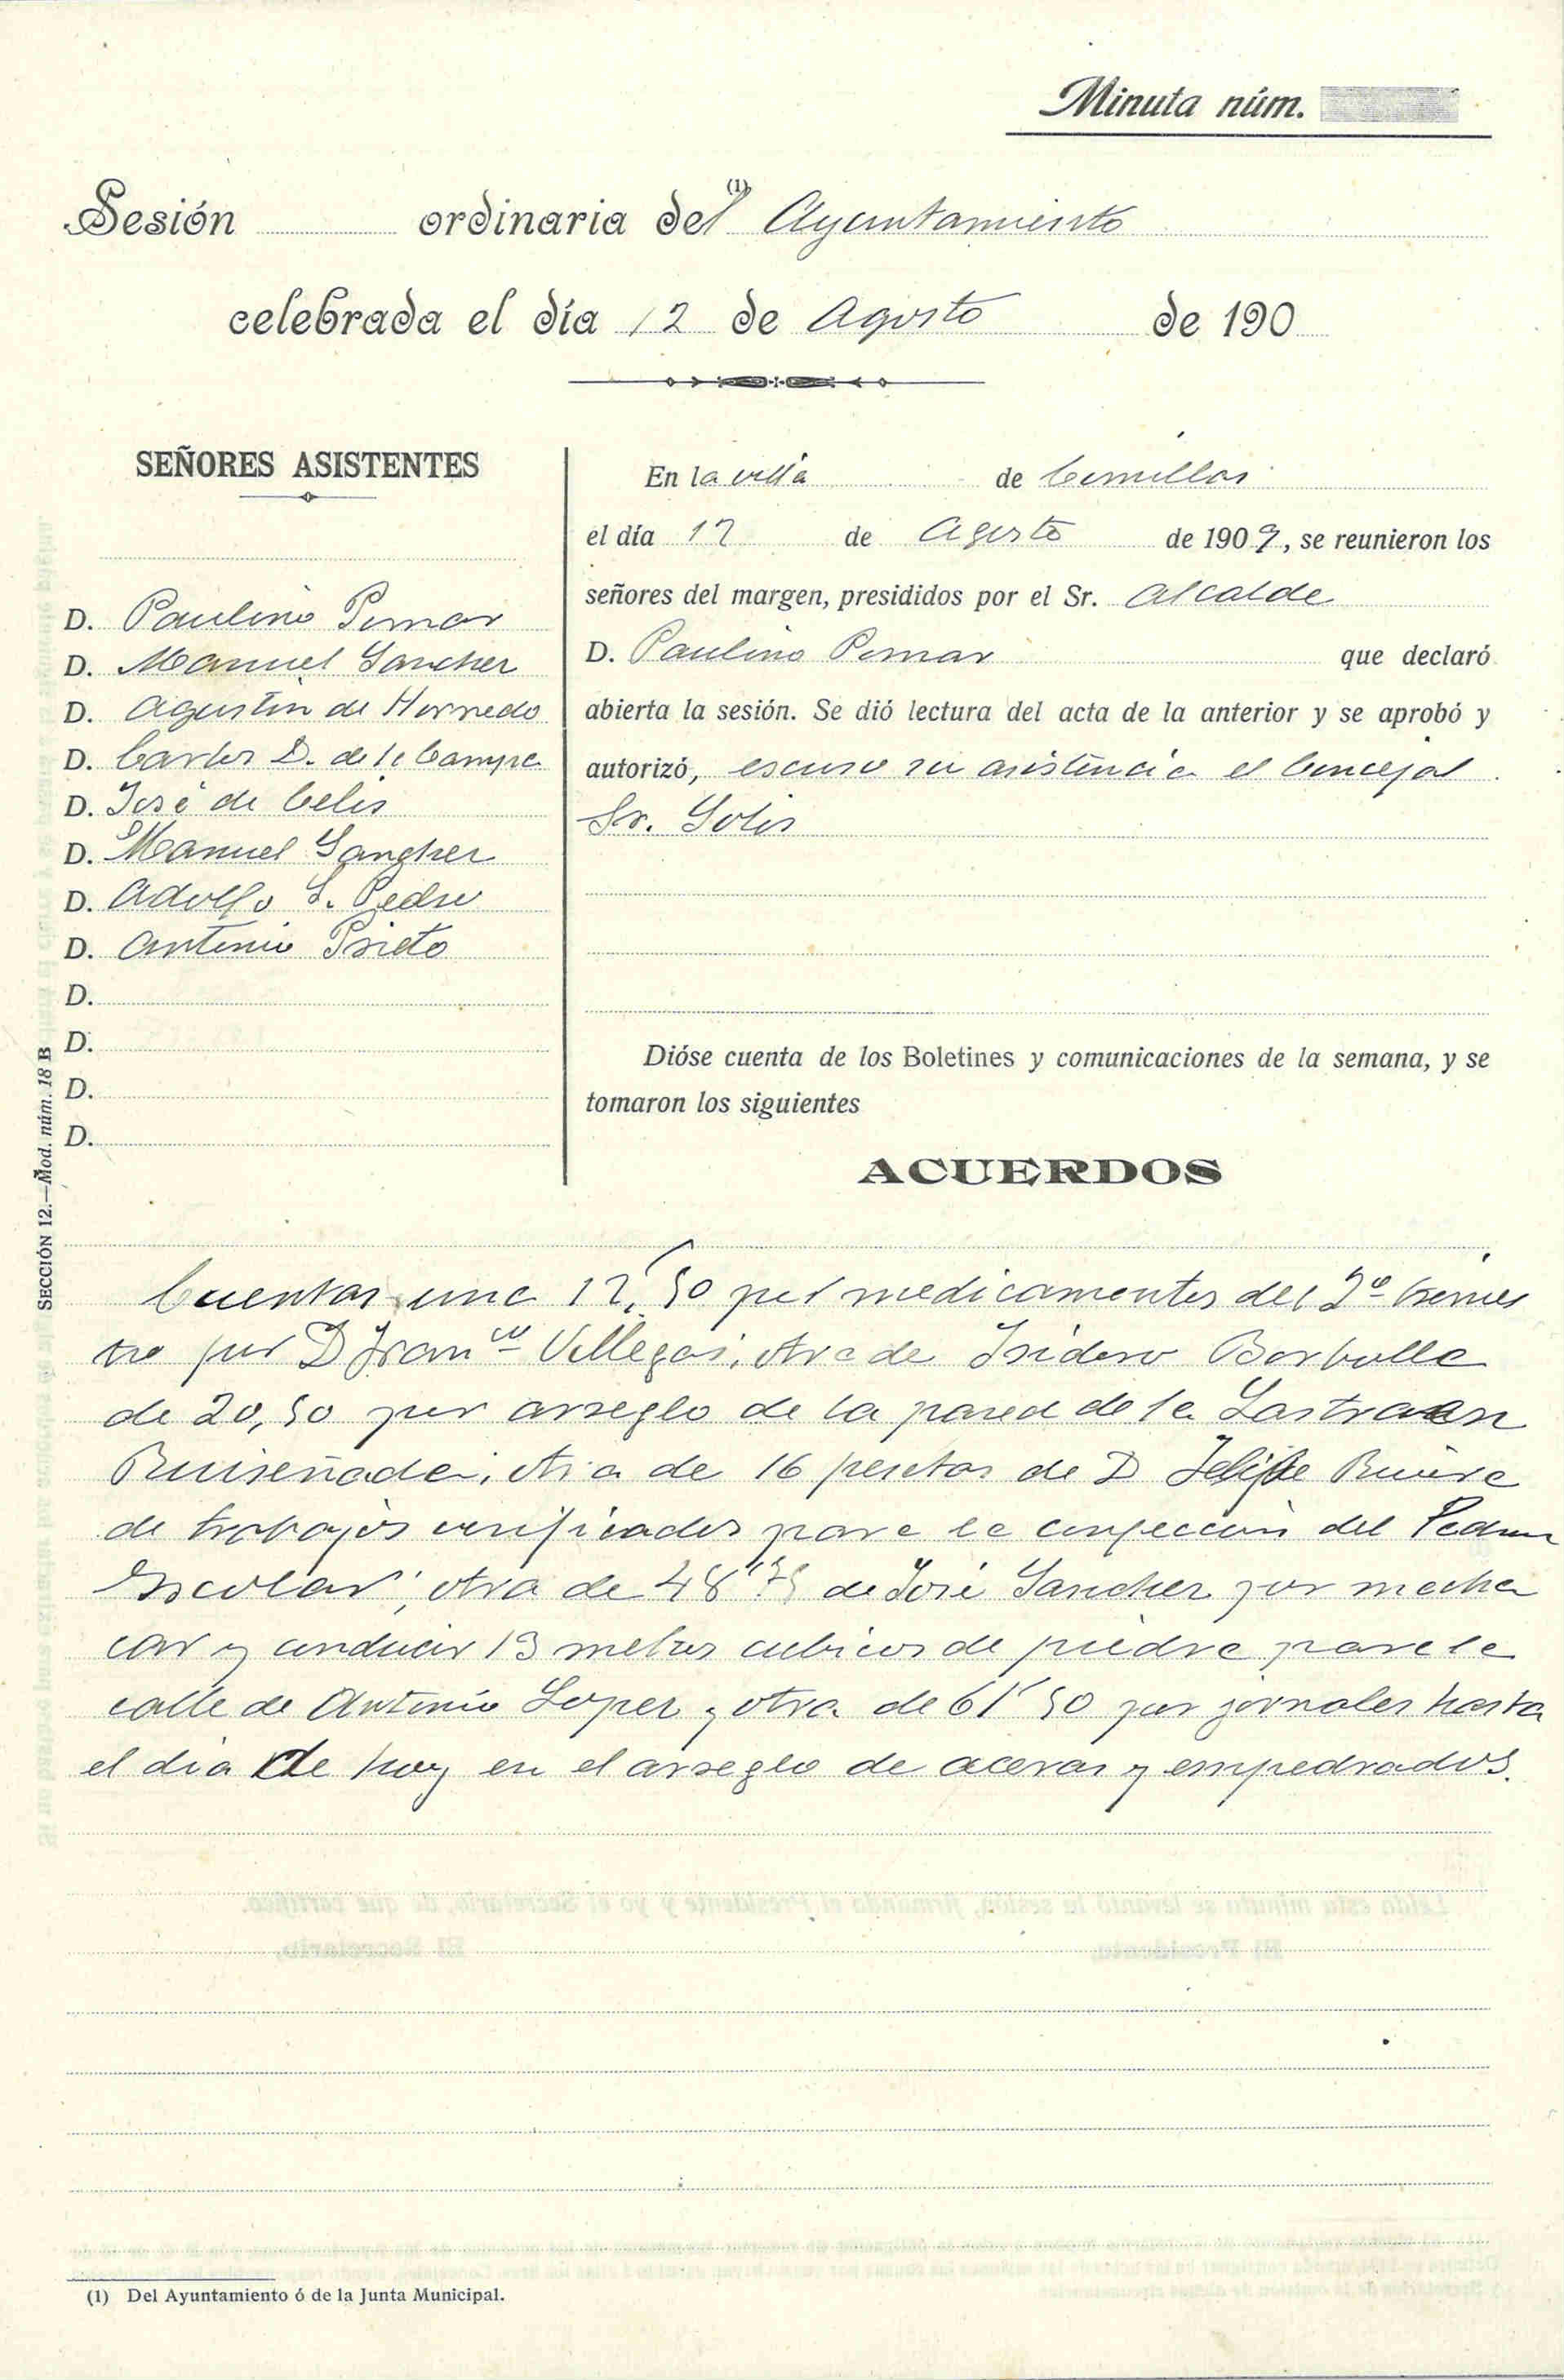 Minuta núm.
Sesión ordinaria del (1) Ayuntamiento
celebrada el día 12 de Agosto de 190
SEÑORES ASISTENTES
D. Paulino Pomar
D. Manuel Sanchez
D. Agustin de Hornedo
D. Carlos D. de la Campa
D. José de Celis
D. Manuel Sanchez
D. Adolfo S. Pedro
D. Antonio Prieto
D.
D.
D.
D.
En la villa de Comillas
el día 12 de Agosto de 1909, se reunieron los
señores del margen, presididos por el Sr. Alcalde
D. Paulino Pomar que declaró
abierta la sesión. Se dió lectura del acta de la anterior y se aprobó y
autorizó, escuso su asistencia el Concejal
Sr. Solis
Dióse cuenta de los Boletines y comunicaciones de la semana, y se
tomaron los siguientes
ACUERDOS
Cuentas una 12,50 por medicamentos del 2º trimes
tre por D Franco Villegas, otra de Isidoro Borbolla
de 20,50 por arreglo de la pared de la Lastra en
Ruiseñada, otra de 16 pesetas de D Felipe
de trabajos verificados para la confeccion del
Escolar; otra de 48'75 de José Sanchez por macha
car y conducir 13 metros cubicos de piedra para la
calle de Antonio Lopez y otra de 61'50 por jornales hasta
el dia de hoy en el arreglo de aceras y empedrados.
SECCIÓN 12.—Mod. núm. 18 B
(1) Del Ayuntamiento ó de la Junta Municipal.